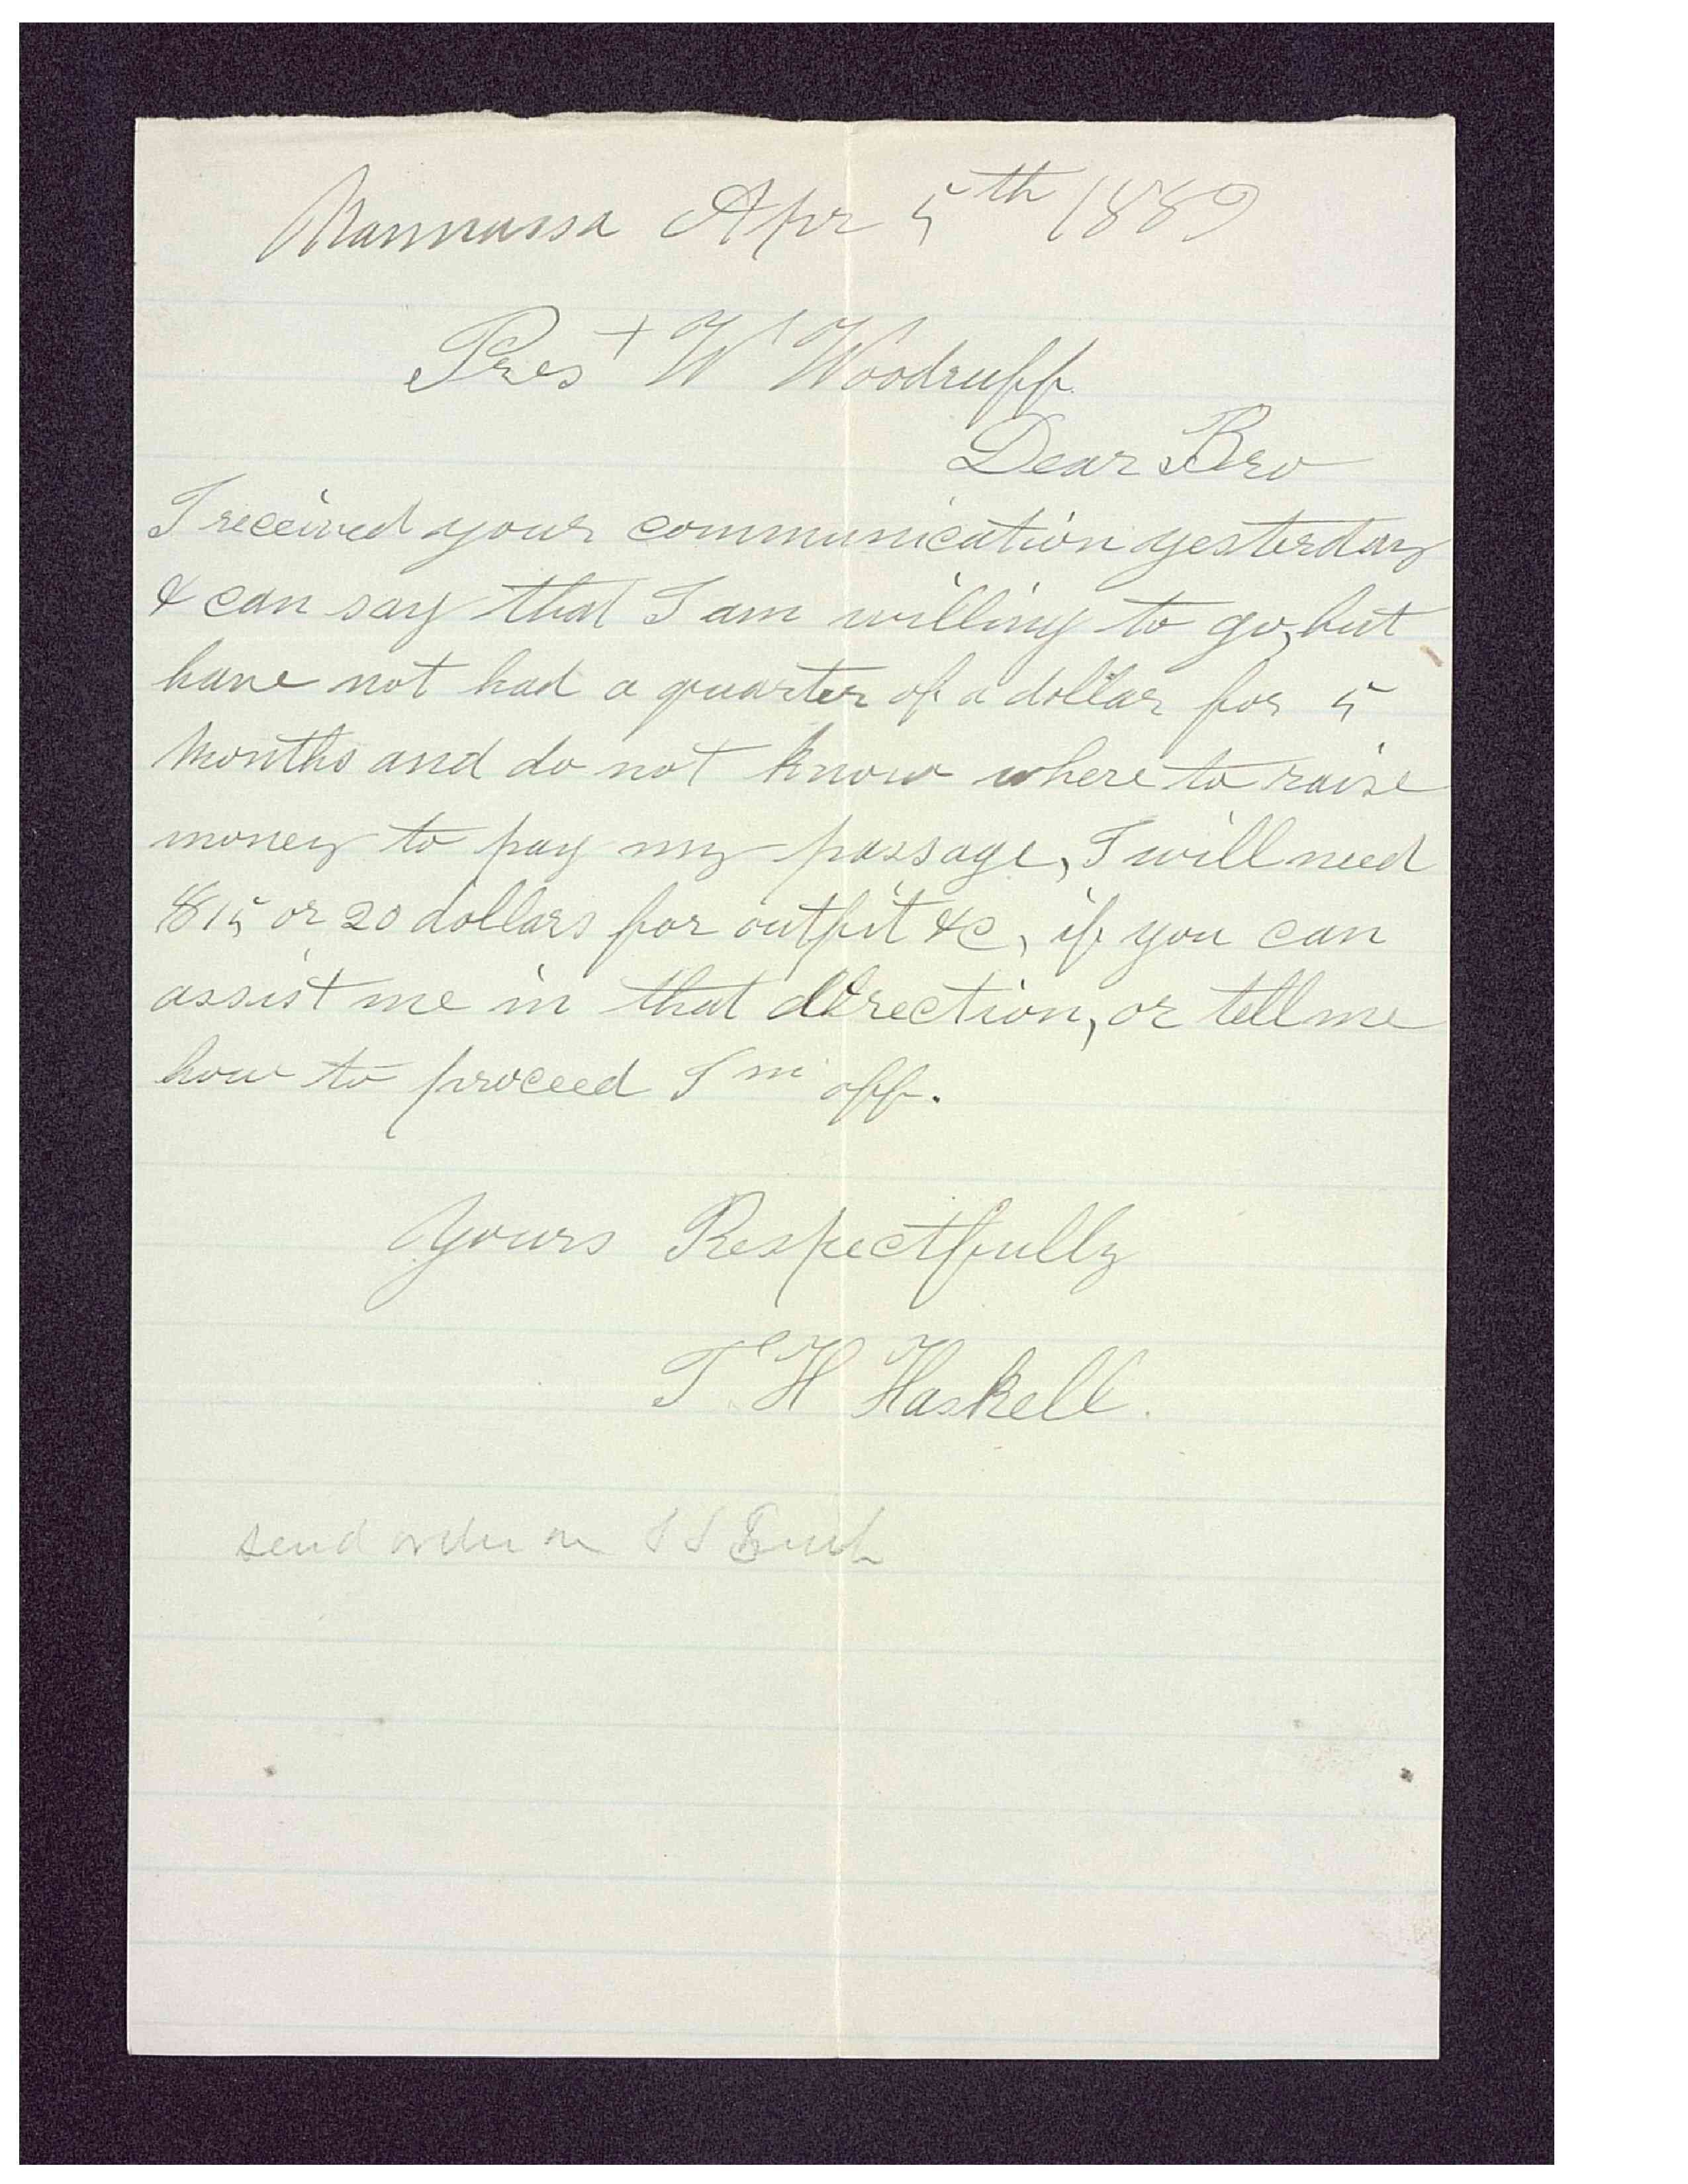 Mannassa Apr 5th 1889
Prest W Woodruff
Dear Bro
I received your communication yesterday
& can say that I am willing to go, but
have not had a quarter of a dollar for 5
months and do not know where to raise
money to pay my passage, I will need
$15 or 20 dollars for outfit &c, if you can
assist me in that direction, or tell me
how to proceed I'm off.
Yours Respectfully
T H Haskell.
send order on